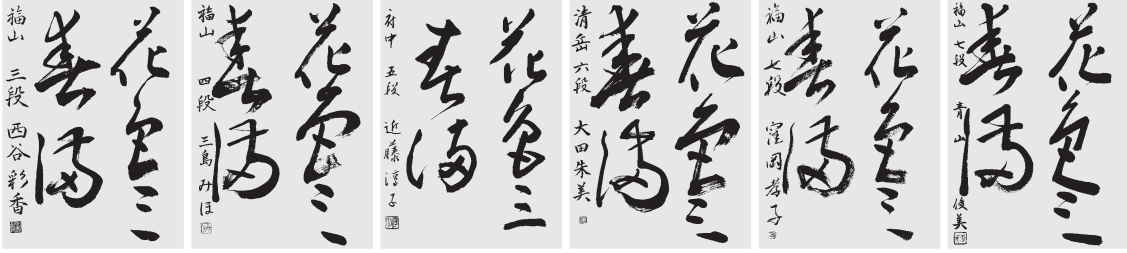 花色三
春満
福山 七段 青山俊美
花色三
春満
福山 七段 窪岡孝子
花色三
春満
清岳 六段 大田朱美
花色三
春満
府中 五段 近藤淳子
花色三
春満
福山 四段 三島みほ
花色三
春満
福山 三段 西谷彩香